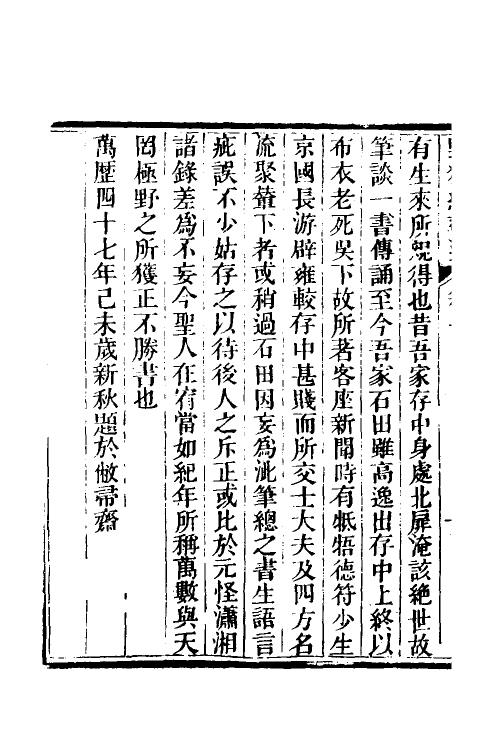 有生來所覬得也昔吾家存中身處北扉淹該絶世故
筆談一書傳誦至今吾家石田雖高逸出存中上終以
布衣老死吳下故所著客座新聞時有牴牾德符少生
京國長游辟雍較存中甚賤而所交士大夫及四方名
流聚輦下者或稍過石田因妄爲泚筆總之書生語言
疵誤不少姑存之以待後人之斥正或比於元怪瀟湘
諸錄差爲不妄今聖人在宥當如紀年所稱萬數與天
罔極野之所獲正不勝書也
萬歷四十七年己未歲新秋題於敝帚齋